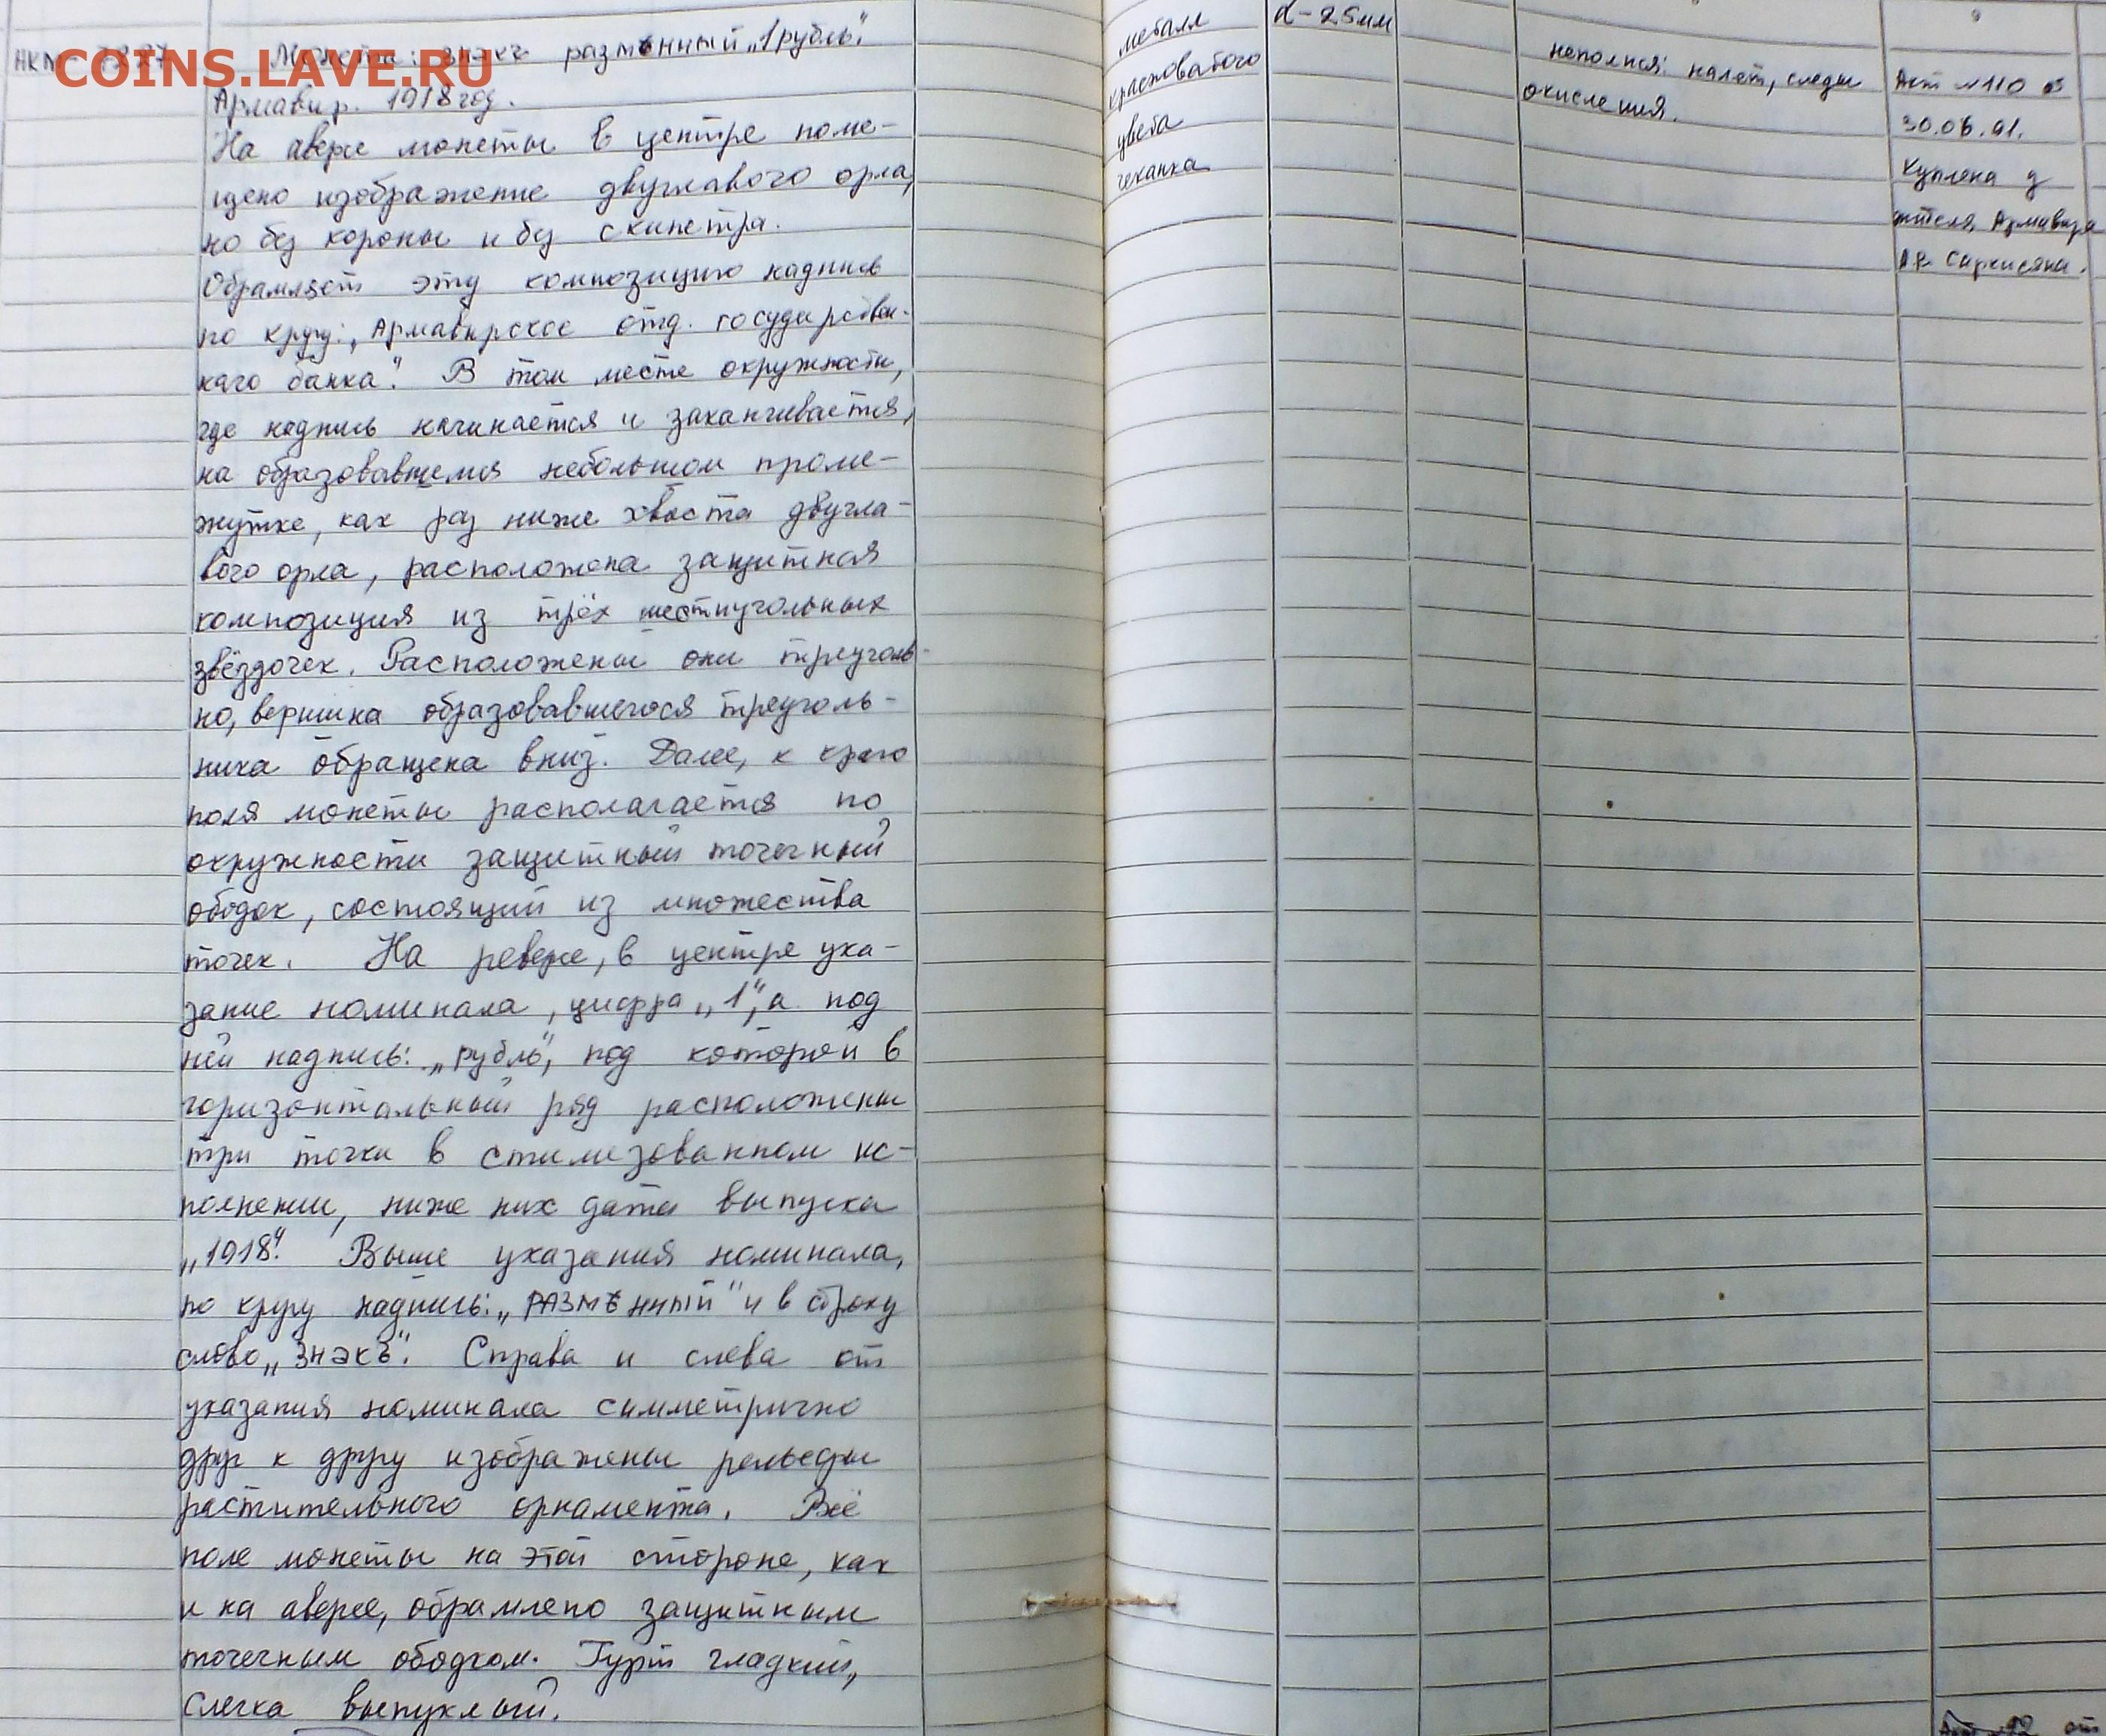 COINS.LAVE.RU
Монета: знакъ размѣнный „1 рубль".
Армавир. 1918 год.
На аверсе монеты в центре поме-
щено изображение двуглавого орла,
но без короны и без скипетра.
Обрамляет эту композицию надпись
по кругу: „Армавирское отд. государствен-
наго банка". В том месте окружности,
где надпись начинается и заканчивается,
на образовавшемся небольшом проме-
жутке, как раз ниже хвоста двугла-
вого орла, расположена защитная
композиция из трёх шестиугольных
звёздочек. Расположены они треуголь-
но, вершина образовавшегося треуголь-
ника обращена вниз. Далее, к краю
поля монеты располагается по
окружности защитный точечный
ободок, состоящий из множества
точек. На реверсе, в центре ука-
зание номинала, цифра „1", а под
ней надпись: „рубль", под которой в
горизонтальный ряд расположены
три точки в стилизованном ис-
полнении, ниже них дата выпуска
„1918". Выше указания номинала,
по кругу надпись: „РАЗМѢННЫЙ" и в строку
слово „ЗНАКЪ". Справа и слева от
указания номинала симметрично
друг к другу изображены рельефы
растительного орнамента. Всё
поле монеты на этой стороне, как
и на аверсе, обрамлено защитным
точечным ободком. Гурт гладкий,
слегка выпуклый.
металл
красноватого
цвета
чеканка
d - 25мм
неполная: налет, следы
окисления.
Акт №110 от
30.06.91.
Куплена у
жителя Армавира
Саркисяна.